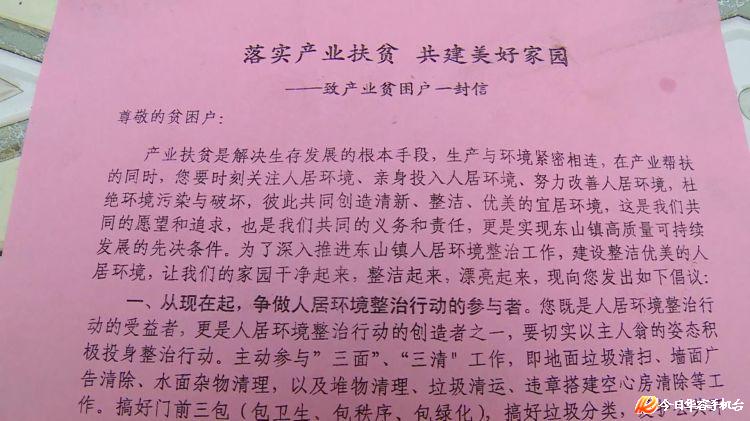 落实产业扶贫 共建美好家园
——致产业贫困户一封信
尊敬的贫困户：
产业扶贫是解决生存发展的根本手段，生产与环境紧密相连，在产业帮扶
的同时，您要时刻关注人居环境、亲身投入人居环境、努力改善人居环境，杜
绝环境污染与破坏，彼此共同创造清新、整洁、优美的宜居环境，这是我们共
同的愿望和追求，也是我们共同的义务和责任，更是实现东山镇高质量可持续
发展的先决条件。为了深入推进东山镇人居环境整治工作，建设整洁优美的人
居环境，让我们的家园干净起来，整洁起来，漂亮起来，现向您发出如下倡议：
一、从现在起，争做人居环境整治行动的参与者。您既是人居环境整治行
动的受益者，更是人居环境整治行动的创造者之一，要切实以主人翁的姿态积
极投身整治行动。主动参与”三面”、“三清"工作，即地面垃圾清扫、墙面广
告清除、水面杂物清理，以及堆物清理、垃圾清运、违章搭建空心房清除等工
作。搞好门前三包（包卫生、包秩序、包绿化），搞好垃圾分类，
今日华容手机台